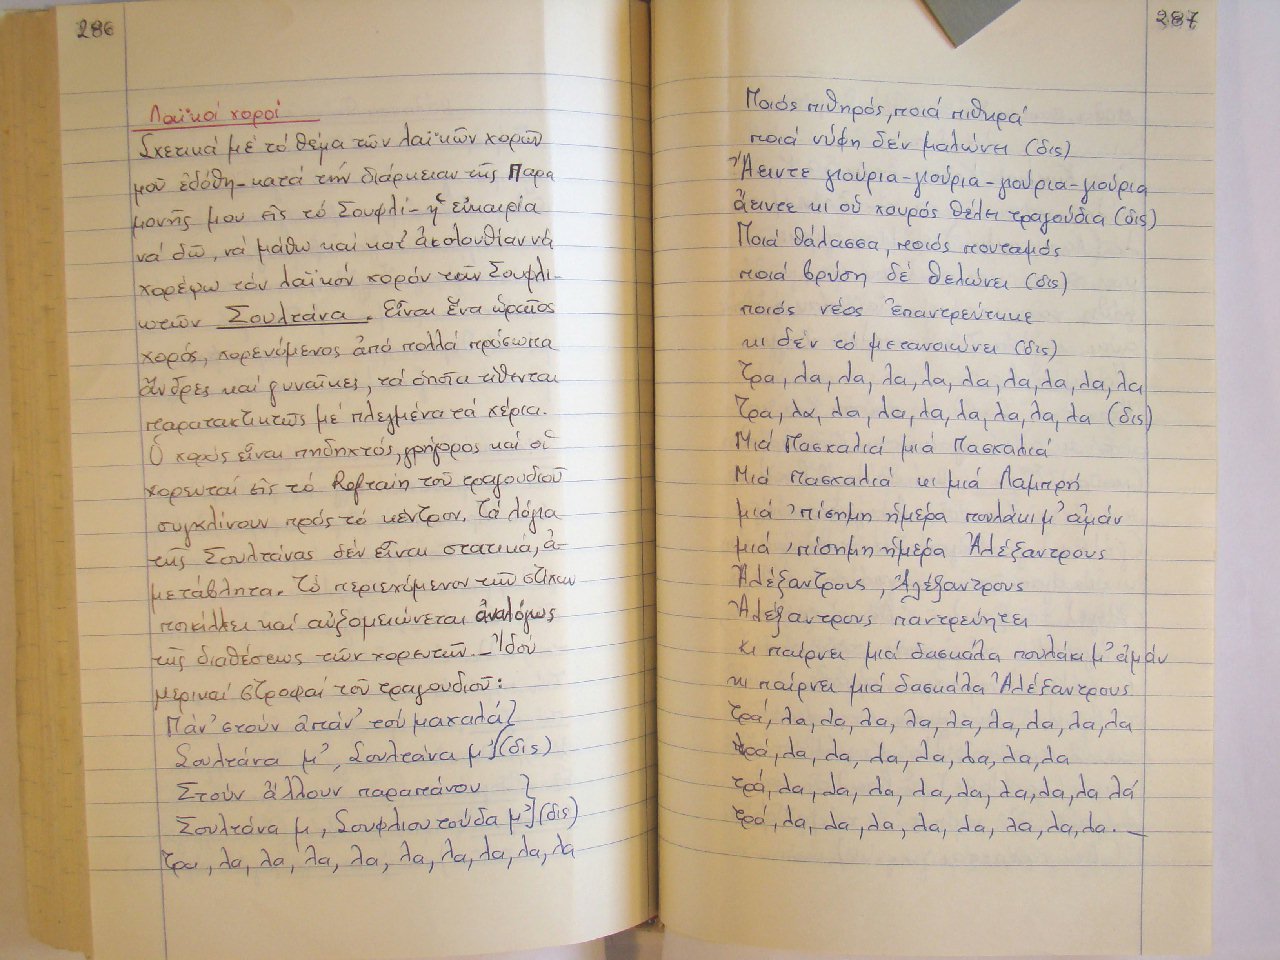 286
Λαϊκοί χοροί
Σχετικά μέ τό θέμα τῶν λαϊκῶν χορῶν
μοῦ ἐδόθη-κατά τήν διάρκειαν τῆς Παρα
μονῆς μου εἰς τό Σουφλί-ἡ εὐκαιρία
νά δῶ, νά μάθω καί κατ' ἀκολουθίαν νά
χορέψω τόν λαϊκόν χορόν τῶν Σουφλι-
ωτῶν Σουλτάνα. Εἶναι ἕνα ὡραῖος
χορός, χορευόμενος ἀπό πολλά πρόσωπα
ἄνδρες καί γυναῖκες, τά ὁποῖα τίθενται
παρατακτικῶς μέ πλεγμένα τά χέρια.
Ὁ χορός εἶναι πηδηχτός, γρήγορος καί οἱ
χορευταί εἰς τό Refrain τοῦ τραγουδιοῦ
συγκλίνουν πρός τό κέντρον. Τά λόγια
τῆς Σουλτάνας δέν εἶναι στατικά, ἀ-
μετάβλητα. Τό περιεχόμενον τῶν στίχων
ποικίλλει καί αὐξομειώνεται ἀναλόγως
τῆς διαθέσεως τῶν χορευτῶν.- Ἰδού
μερικαί στροφαί τοῦ τραγουδιοῦ:
Πάν' στούν ἀπάν' τού μαχαλά
Σουλτάνα μ', Σουλτάνα μ' (δις)
Στούν ἄλλουν παραπάνου
Σουλτάνα μ, Σουφλιουτούδα μ' (δις)
Τρα, λα, λα, λα, λα, λα, λα, λα, λα, λα
287
Ποιός πιθηρός, ποιά πιθηρά
ποιά νύφη δέν μαλώνει (δις)
Ἄειντε γιούρια-γιούρια-γιούρια-γιούρια
ἄειντε κι οὑ χουρός θέλει τραγούδια (δις)
Ποιά θάλασσα, ποιός πουταμός
ποιά βρύση δέ θελώνει (δις)
ποιός νέος ἐπαντρεύτηκε
κι δέν τό μετανοιώνει (δις)
Τρα, λα, λα, λα, λα, λα, λα, λα, λα, λα
Τρα, λα, λα, λα, λα, λα, λα, λα, λα (δις)
Μιά Πασκαλιά μιά Πασκαλιά
Μιά Πασκαλιά κι μιά Λαμπρή
μιά 'πίσημη ἡμέρα πουλάκι μ' ἀμάν
μιά 'πίσημη ἡμέρα Ἀλέξαντρους
Ἀλέξαντρους, Ἀλέξαντρους
Ἀλέξαντρους παντρεύητει
κι παίρνει μιά δασκάλα πουλάκι μ' ἀμάν
κι παίρνει μιά δασκάλα Ἀλέξαντρους
τρά, λα, λα, λα, λα, λα, λα, λα, λα, λα
τρά, λα, λα, λα, λα, λα, λα, λα
τρά, λα, λα, λα, λα, λα, λα, λα, λα λά
τρά, λα, λα, λα, λα, λα, λα, λα, λα.—